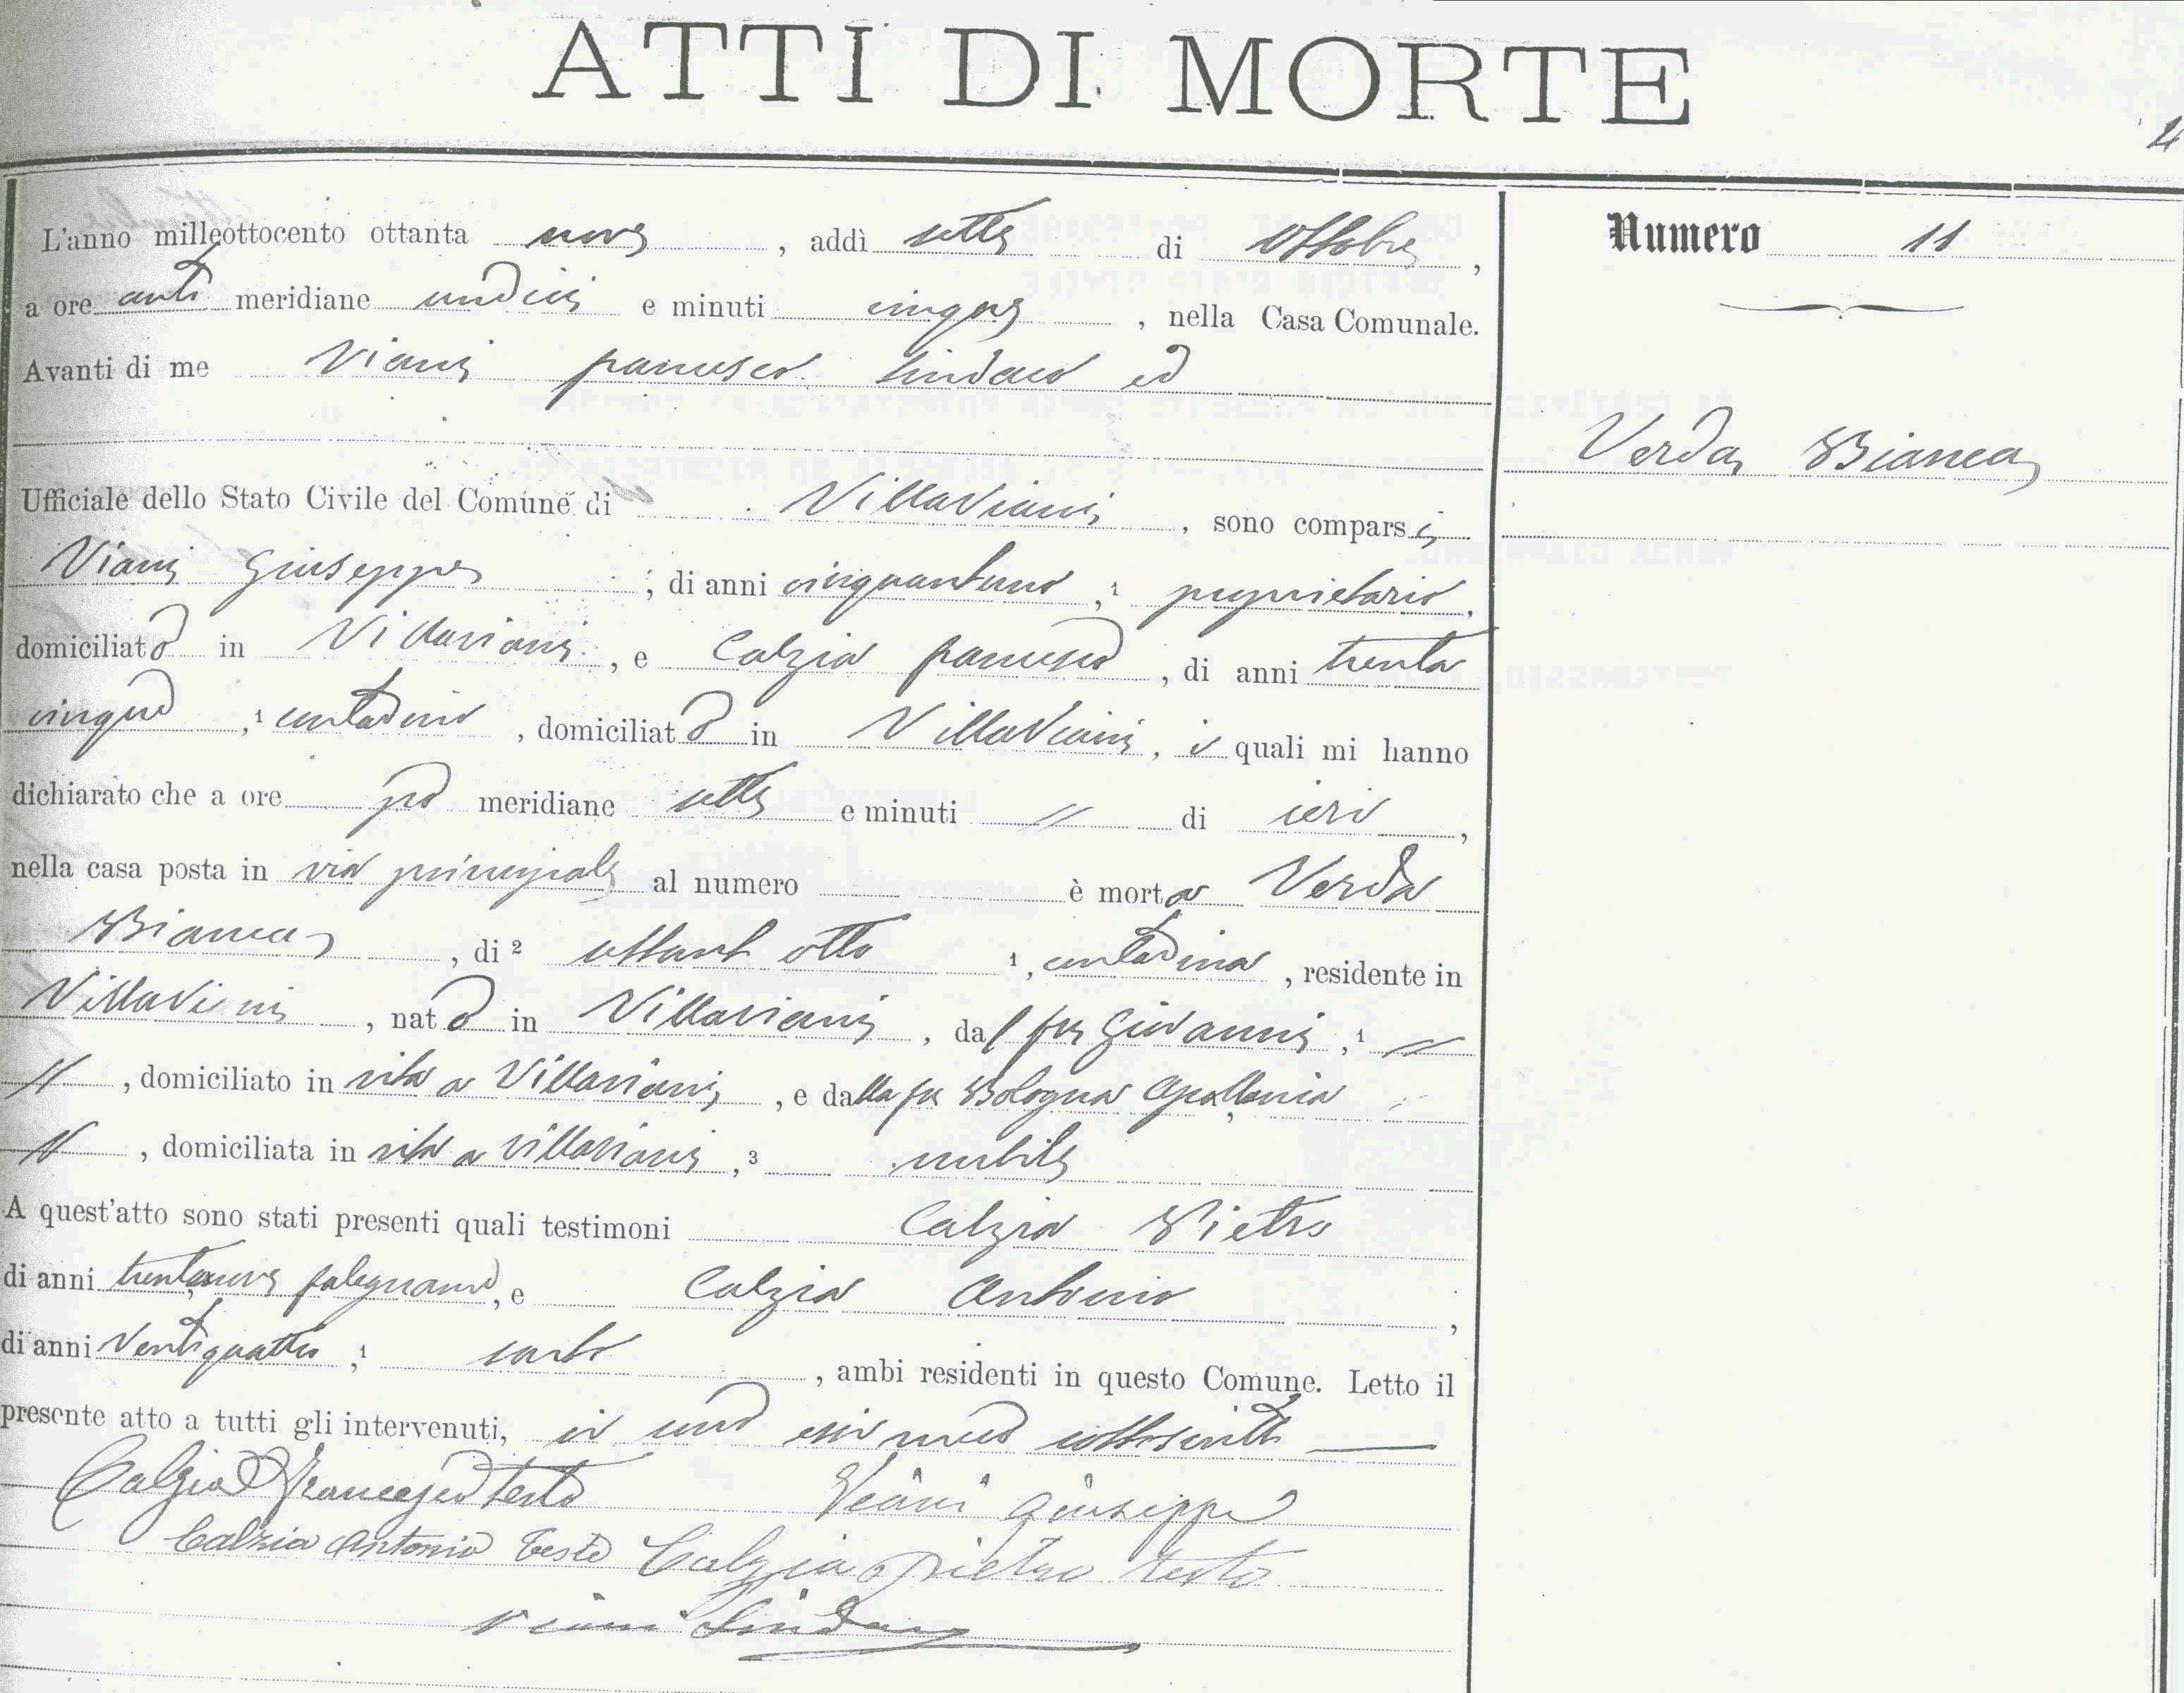 ATTI DI MORTE
4
L'anno milleottocento ottanta nove, addì sette di Ottobre,
a ore anti meridiane undici e minuti cinque, nella Casa Comunale.
Avanti di me Viani Francesco Sindaco ed
Ufficiale dello Stato Civile del Comune di Villaviani, sono comparsi
Viani Giuseppe, di anni cinquantuno, ¹ proprietario,
domiciliato in Villaviani, e Calzia Francesco, di anni trenta
cinque, ¹ contadino, domiciliato in Villaviani, i quali mi hanno
dichiarato che a ore po meridiane sette e minuti // di ieri,
nella casa posta in via principale al numero è morta Verda
Bianca, di ² ottant otto ¹, contadina, residente in
Villaviani, nato in Villaviani, dal fu Giovanni, ¹ //
//, domiciliato in vita a Villaviani, e dalla fu Bologna Apollonia
//, domiciliata in vita a Villaviani, ³ nubile
A quest'atto sono stati presenti quali testimoni Calzia Pietro
di anni trentanove falegname, e Calzia Antonio,
di anni Ventiquattro, ¹ sarto, ambi residenti in questo Comune. Letto il
presente atto a tutti gli intervenuti, si sono essi meco sottoscritti
Calzia Francesco teste Viani Giuseppe
Calzia Antonio teste Calzia Pietro teste
Viani Sindaco
Numero 11
Verda Bianca